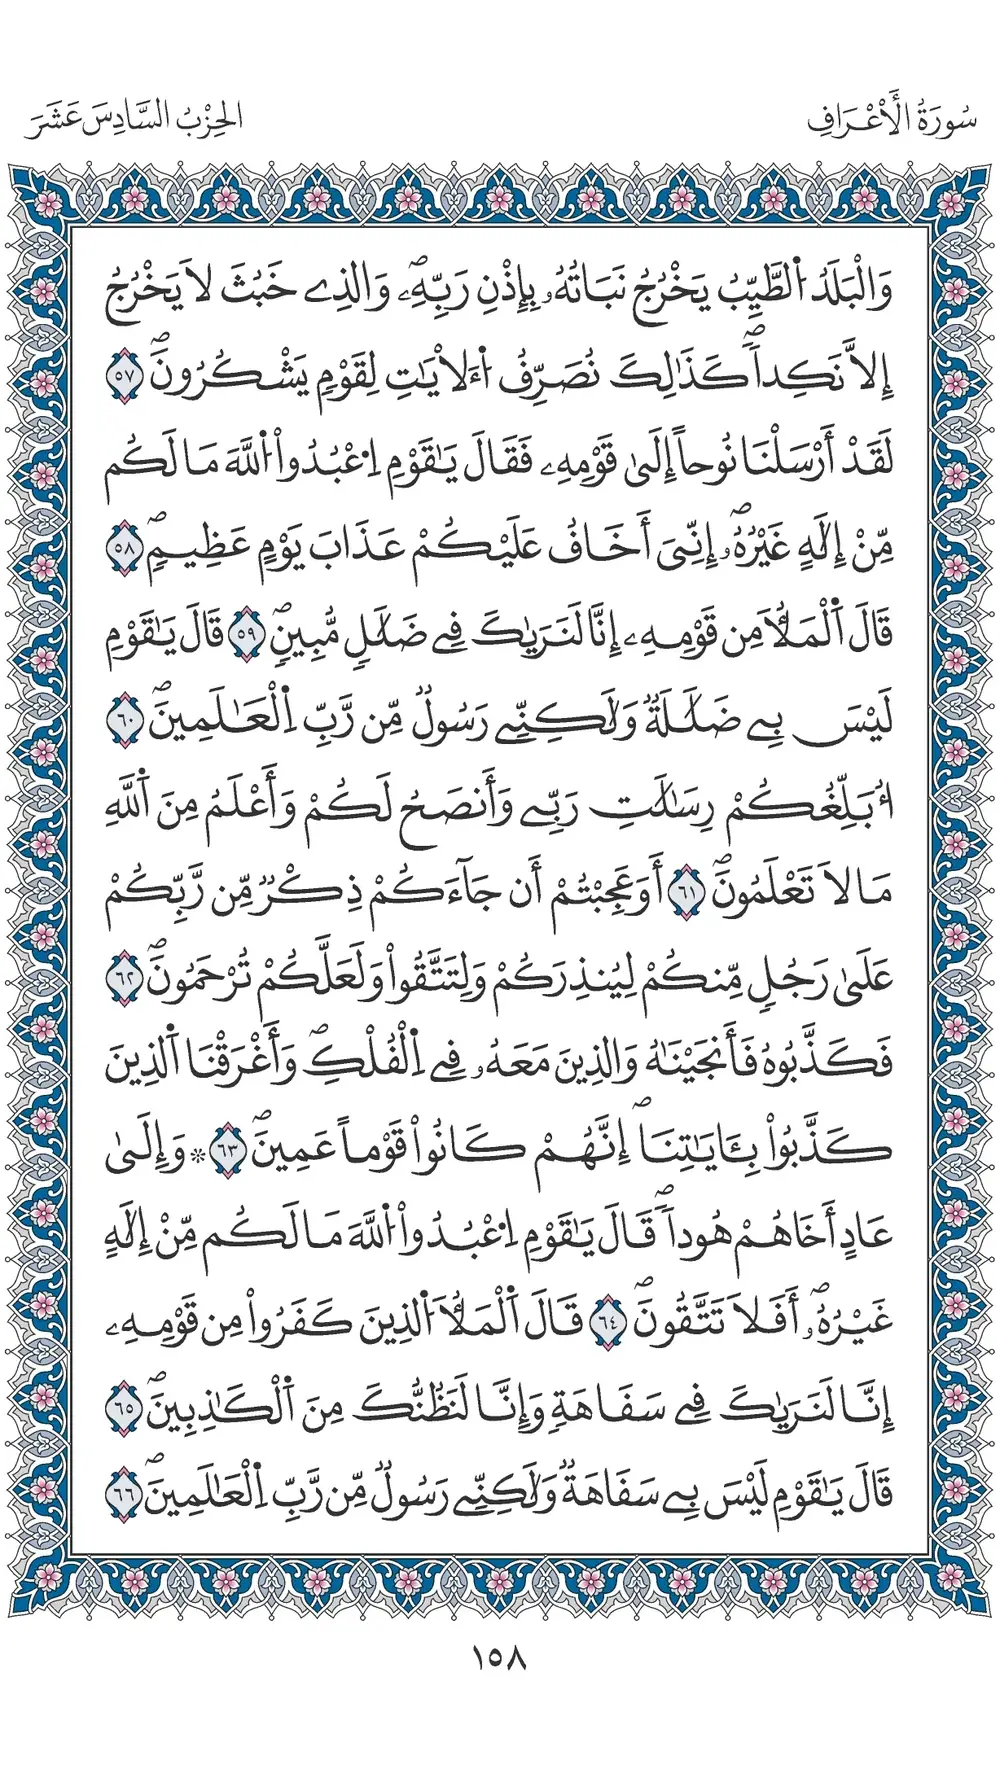 سُورَةُ الْأَعْرَافِ
الحِزْبُ السَّادِسَ عَشَرَ
وَالْبَلَدُ اُ۬لطَّيِّبُ يَخْرُجُ نَبَاتُهُۥ بِإِذْنِ رَبِّهِۦۖ وَالذِے خَبُثَ لَا يَخْرُجُ
إِلَّا نَكِداٗۖ كَذَٰلِكَ نُصَرِّفُ اُ۬لَايَٰتِ لِقَوْمٖ يَشْكُرُونَۖ ٥٧
لَقَدْ أَرْسَلْنَا نُوحاً إِلَىٰ قَوْمِهِۦ فَقَالَ يَٰقَوْمِ اِ۟عْبُدُواْ اُ۬للَّهَ مَا لَكُم
مِّنْ إِلَٰهٍ غَيْرُهُۥۖ إِنِّيَ أَخَافُ عَلَيْكُمْ عَذَابَ يَوْمٍ عَظِيمٖۖ ٥٨
قَالَ اَ۬لْمَلَأُ مِن قَوْمِهِۦ إِنَّا لَنَرَيٰكَ فِے ضَلَٰلٖ مُّبِينٖۖ ٥٩ قَالَ يَٰقَوْمِ
لَيْسَ بِے ضَلَٰلَةٞ وَلَٰكِنِّے رَسُولٞ مِّن رَّبِّ اِ۬لْعَٰلَمِينَۖ ٦٠
أُبَلِّغُكُمْ رِسَٰلَٰتِ رَبِّے وَأَنصَحُ لَكُمْ وَأَعْلَمُ مِنَ اَ۬للَّهِ
مَا لَا تَعْلَمُونَۖ ٦١ أَوَعَجِبْتُمْ أَن جَآءَكُمْ ذِكْرٞ مِّن رَّبِّكُمْ
عَلَىٰ رَجُلٖ مِّنكُمْ لِيُنذِرَكُمْ وَلِتَتَّقُواْ وَلَعَلَّكُمْ تُرْحَمُونَۖ ٦٢
فَكَذَّبُوهُ فَأَنجَيْنَٰهُ وَالذِينَ مَعَهُۥ فِے اِ۬لْفُلْكِۖ وَأَغْرَقْنَا اَ۬لذِينَ
كَذَّبُواْ بِـَٔايَٰتِنَاۖ إِنَّهُمْ كَانُواْ قَوْماً عَمِينَۖ ٦٣ ۞ وَإِلَىٰ
عَادٍ أَخَاهُمْ هُوداٗۖ قَالَ يَٰقَوْمِ اِ۟عْبُدُواْ اُ۬للَّهَ مَا لَكُم مِّنْ إِلَٰهٍ
غَيْرُهُۥۖ أَفَلَا تَتَّقُونَۖ ٦٤ قَالَ اَ۬لْمَلَأُ اُ۬لذِينَ كَفَرُواْ مِن قَوْمِهِۦ
إِنَّا لَنَرَيٰكَ فِے سَفَاهَةٖ وَإِنَّا لَنَظُنُّكَ مِنَ اَ۬لْكَٰذِبِينَۖ ٦٥
قَالَ يَٰقَوْمِ لَيْسَ بِے سَفَاهَةٞ وَلَٰكِنِّے رَسُولٞ مِّن رَّبِّ اِ۬لْعَٰلَمِينَۖ ٦٦
١٥٨